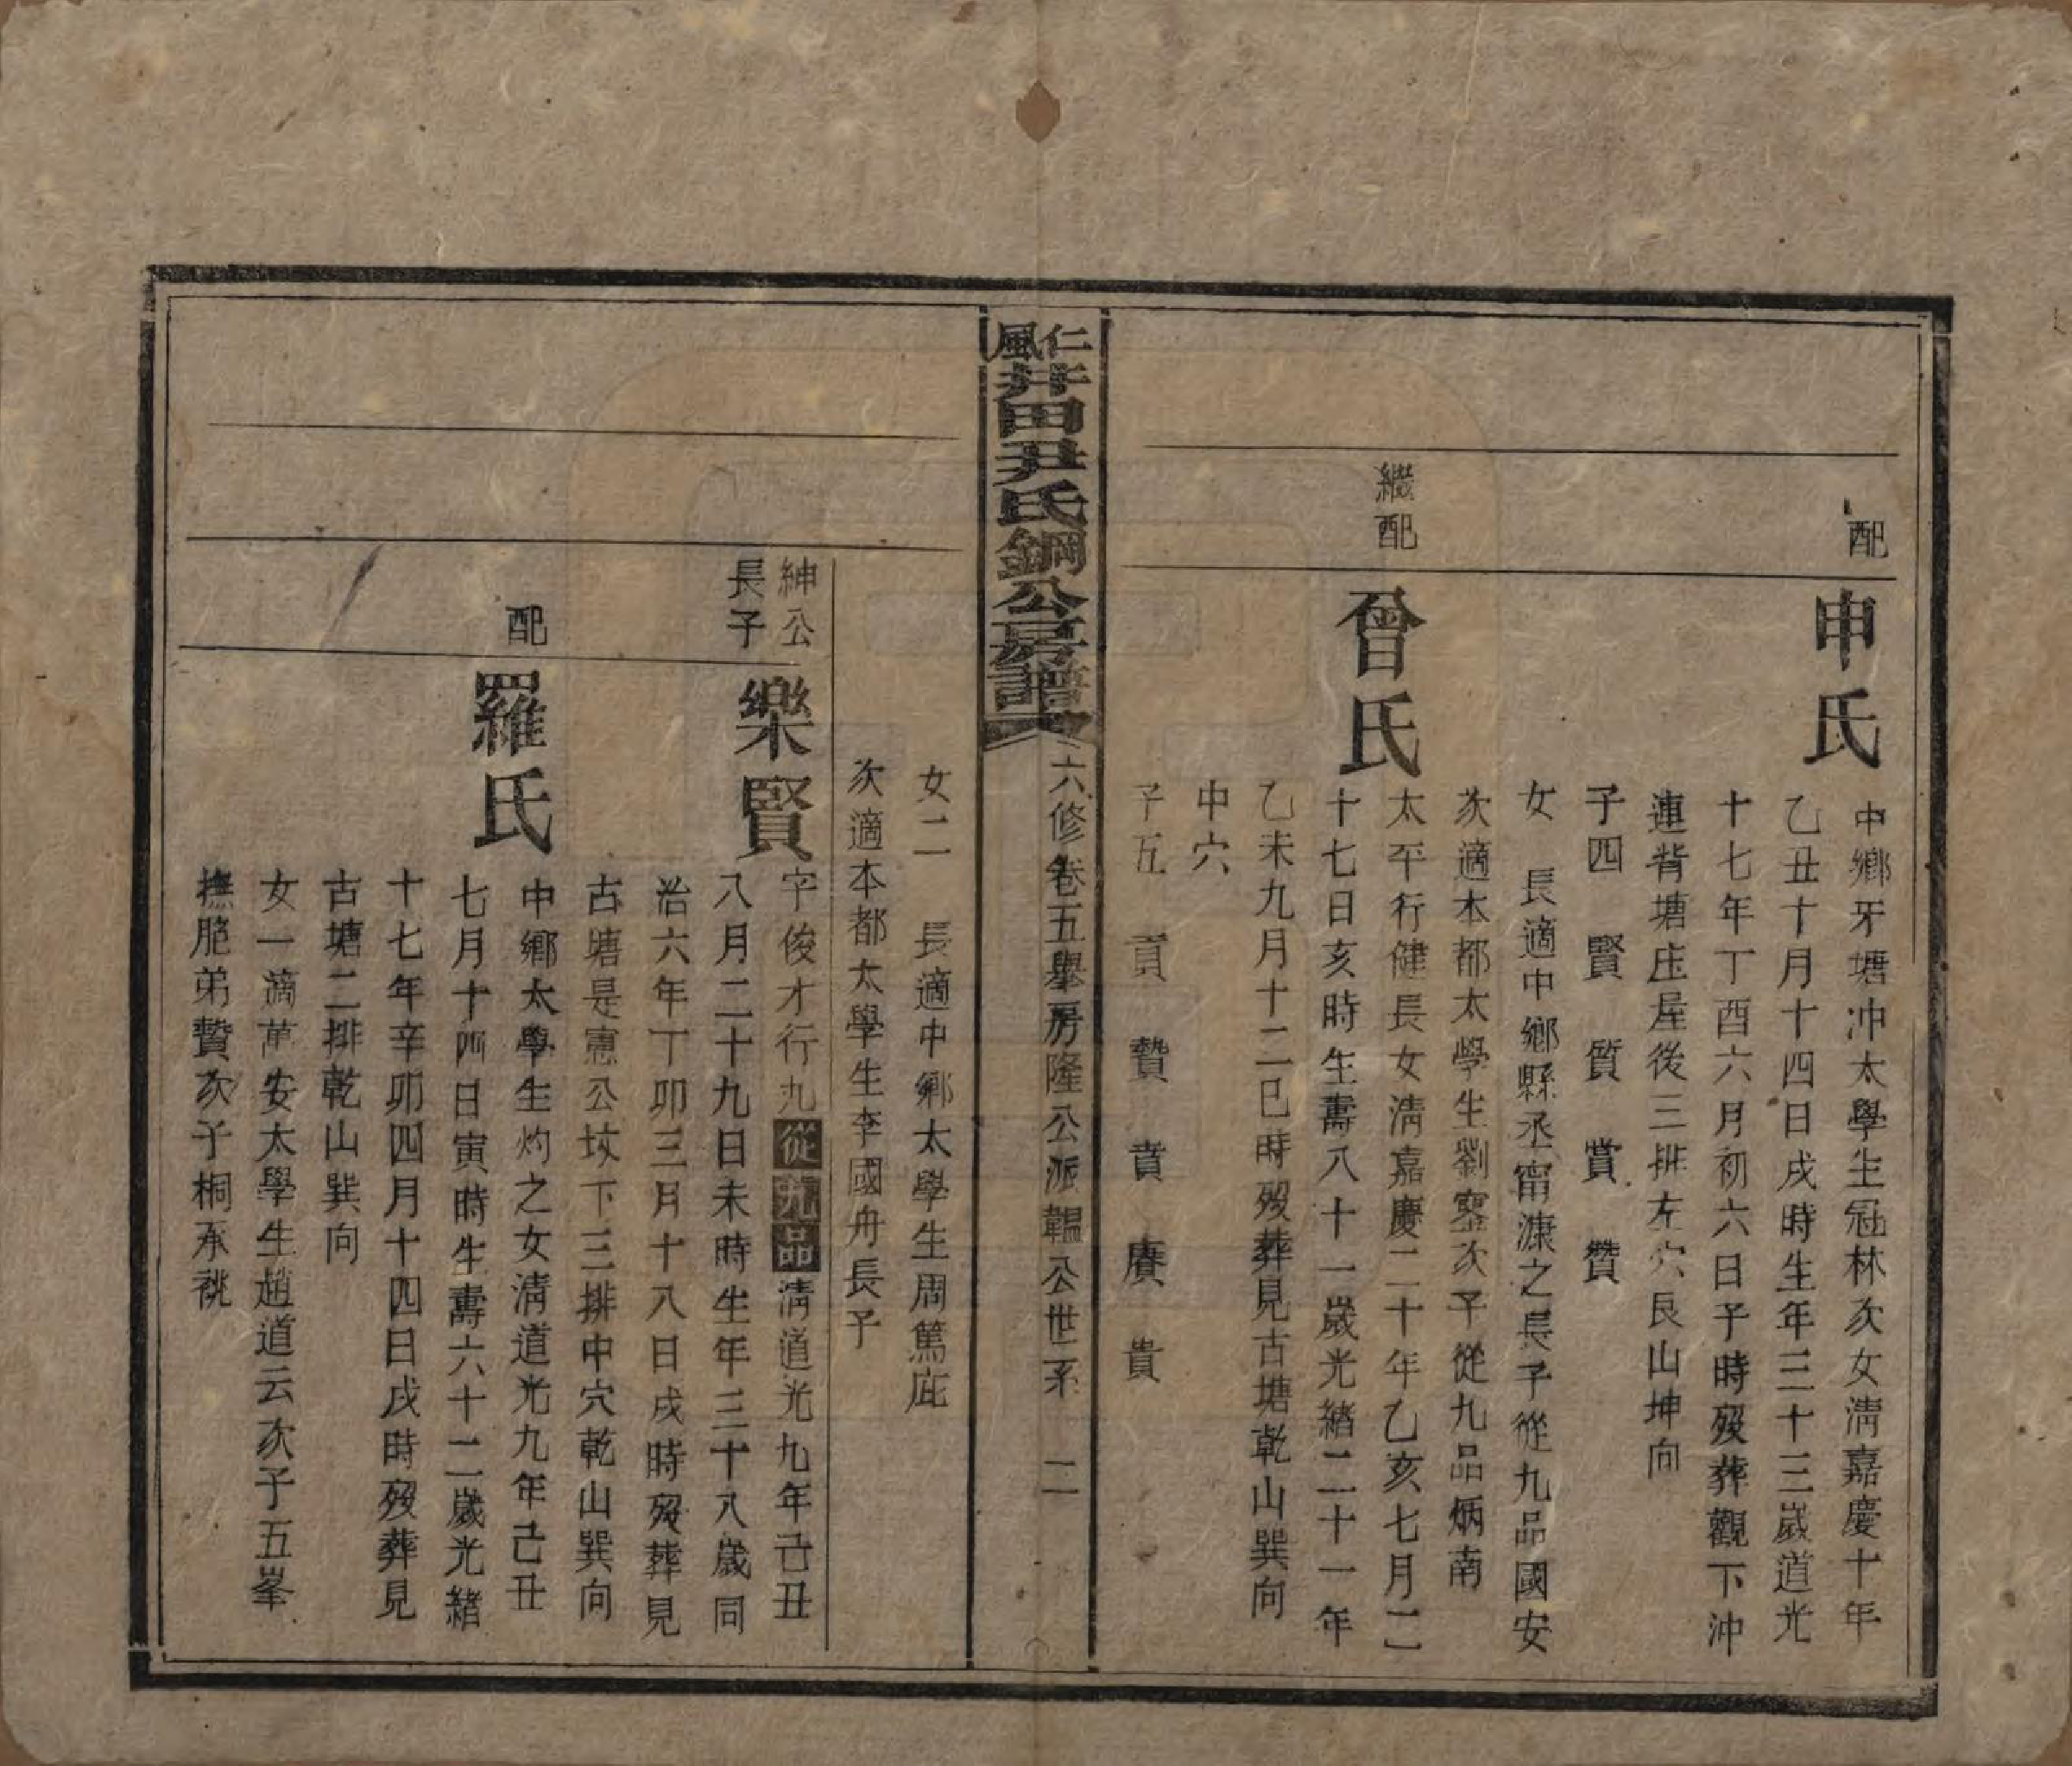 配
申氏
中鄉牙塘冲太學生冠林次女淸嘉慶十年
乙丑十月十四日戌時生年三十三歲道光
十七年丁酉六月初六日子時歿葬觀下沖
連背塘庄屋後三排左穴艮山坤向
子四 賢 質 賞 贊
女 長適中鄉縣丞甯濂之長子從九品國安
次適本都太學生劉 次子從九品炳南
繼配
曾氏
太平行健長女淸嘉慶二十年乙亥七月二
十七日亥時生壽八十一歲光緒二十一年
乙未九月十二巳時歿葬見古塘乾山巽向
中穴
子五 貢 贊 賁 賡 貴
仁風井田尹氏鋼公房譜
六修卷五舉房隆公派韞公世系 二
女二 長適中鄉太學生周篤庇
次適本都太學生李國舟長子
紳公
長子
樂賢
字俊才行九從九品淸道光九年己丑
八月二十九日未時生年三十八歲同
治六年丁卯三月十八日戌時歿葬見
古塘是憲公坟下三排中穴乾山巽向
配
羅氏
中鄉太學生灼之女淸道光九年己丑
七月十四日寅時生壽六十二歲光緒
十七年辛卯四月十四日戌時歿葬見
古塘二排乾山巽向
女一適萬安太學生趙道云次子五峯
撫胞弟贊次子桐承祧